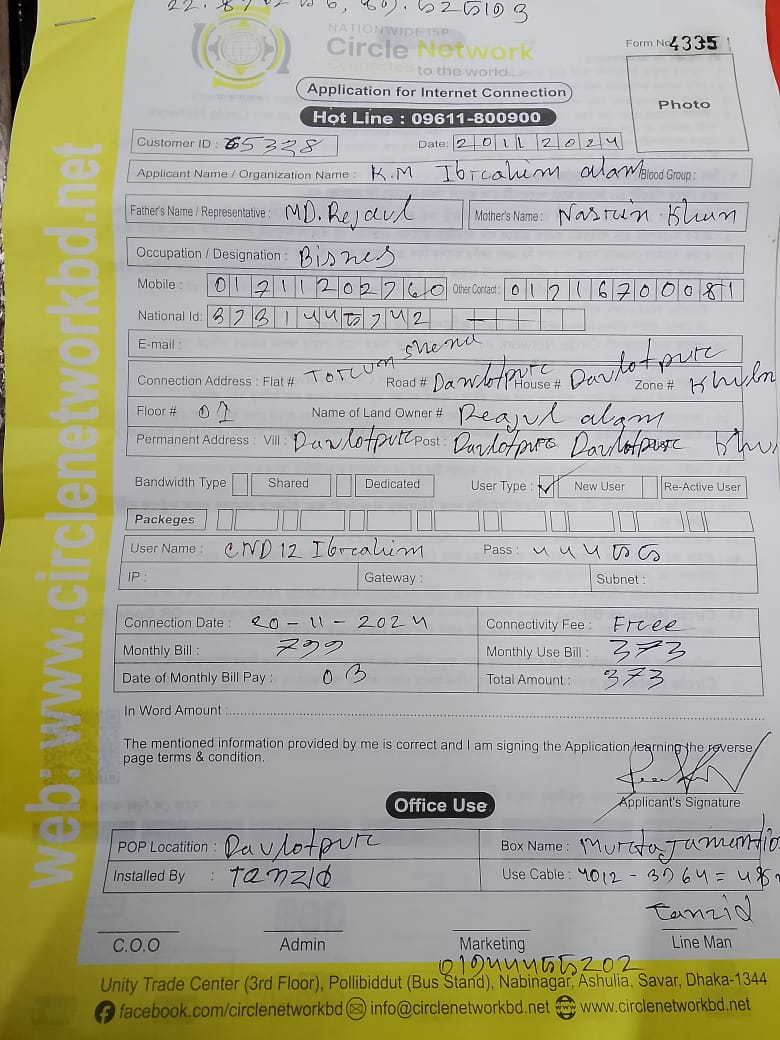 NATIONWIDE ISP
Circle Network
Connected to the world
Form No 4335
Application for Internet Connection
Photo
Hot Line : 09611-800900
Customer ID : 65328 Date: 20112024
Applicant Name / Organization Name : K.M Ibrcahim alam Blood Group :
Father's Name / Representative : MD. Rejaul Mother's Name : Nasrin Khun
Occupation / Designation : Bisnes
Mobile : 01711202760 Other Contact : 01216700081
National Id:
E-mail :
Connection Address : Flat # Road # Davlotpurc House # Davlotpurc Zone #
Floor # 01 Name of Land Owner # Reajul alam
Permanent Address : Vill : Davlotpurc Post : Davlotpurc Davlotpurc
Bandwidth Type Shared Dedicated User Type : ✓ New User Re-Active User
Packeges
User Name : CND12 Ibrcahim Pass :
IP : Gateway : Subnet :
Connection Date : 20-11-2024 Connectivity Fee : Frcee
Monthly Bill : 799 Monthly Use Bill : 373
Date of Monthly Bill Pay : 03 Total Amount : 373
In Word Amount :
The mentioned information provided by me is correct and I am signing the Application learning the reverse
page terms & condition.
Applicant's Signature
Office Use
POP Locatition : Davlotpurc Box Name :
Installed By : Tanzid Use Cable :
Tanzid
C.O.O Admin Marketing Line Man
Unity Trade Center (3rd Floor), Pollibiddut (Bus Stand), Nabinagar, Ashulia, Savar, Dhaka-1344
facebook.com/circlenetworkbd info@circlenetworkbd.net www.circlenetworkbd.net
web: www.circlenetworkbd.net